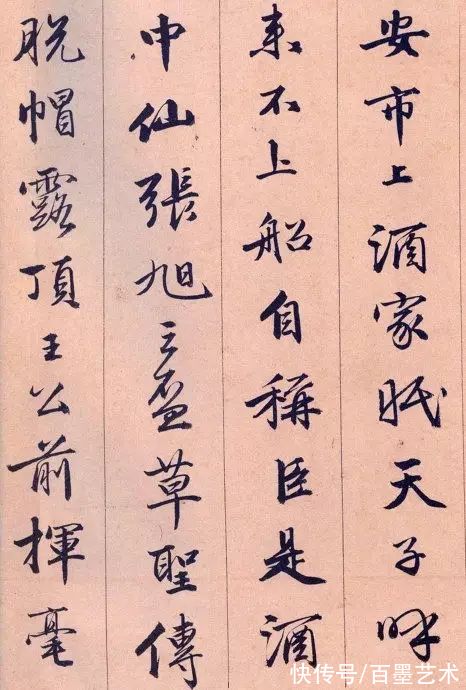 安市上酒家眠天子呼
来不上船自稱臣是酒
中仙張旭三盃草聖傳
脱帽露頂王公前揮毫
快传号/百墨艺术